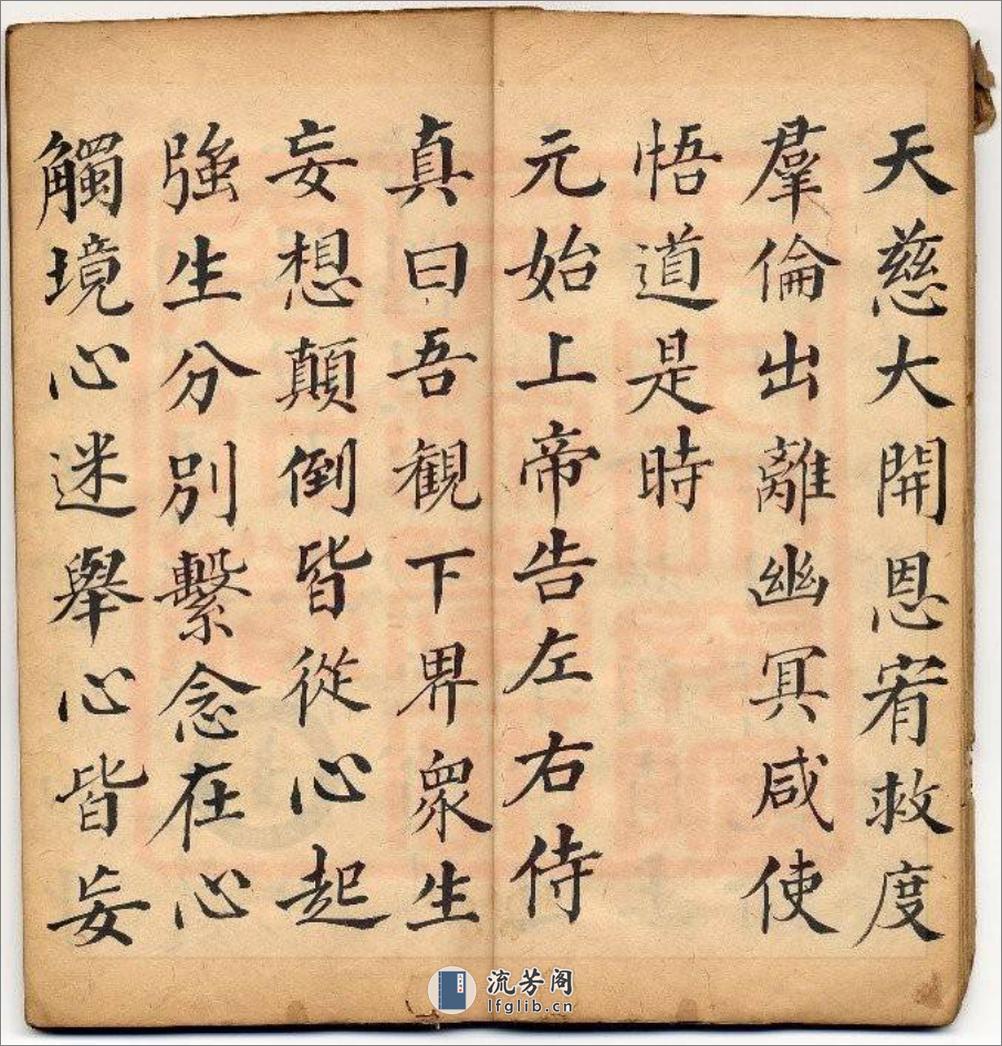 天慈大開恩宥救度
羣倫出離幽冥咸使
悟道是時
元始上帝告左右侍
真曰吾観下界衆生
妄想顛倒皆從心起
強生分別繫念在心
觸境心迷舉心皆妄
流芳阁
lfglib.cn